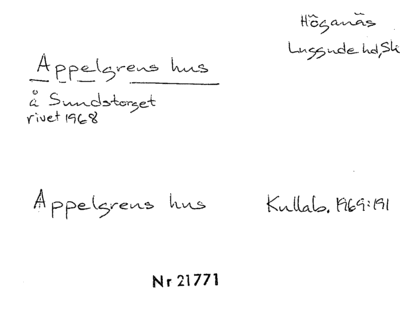 Höganäs
Luggude hd, Sk
Appelgrens hus
å Sundstorget
rivet 1968
Appelgrens hus
Kullab. 1969:191
Nr 21771